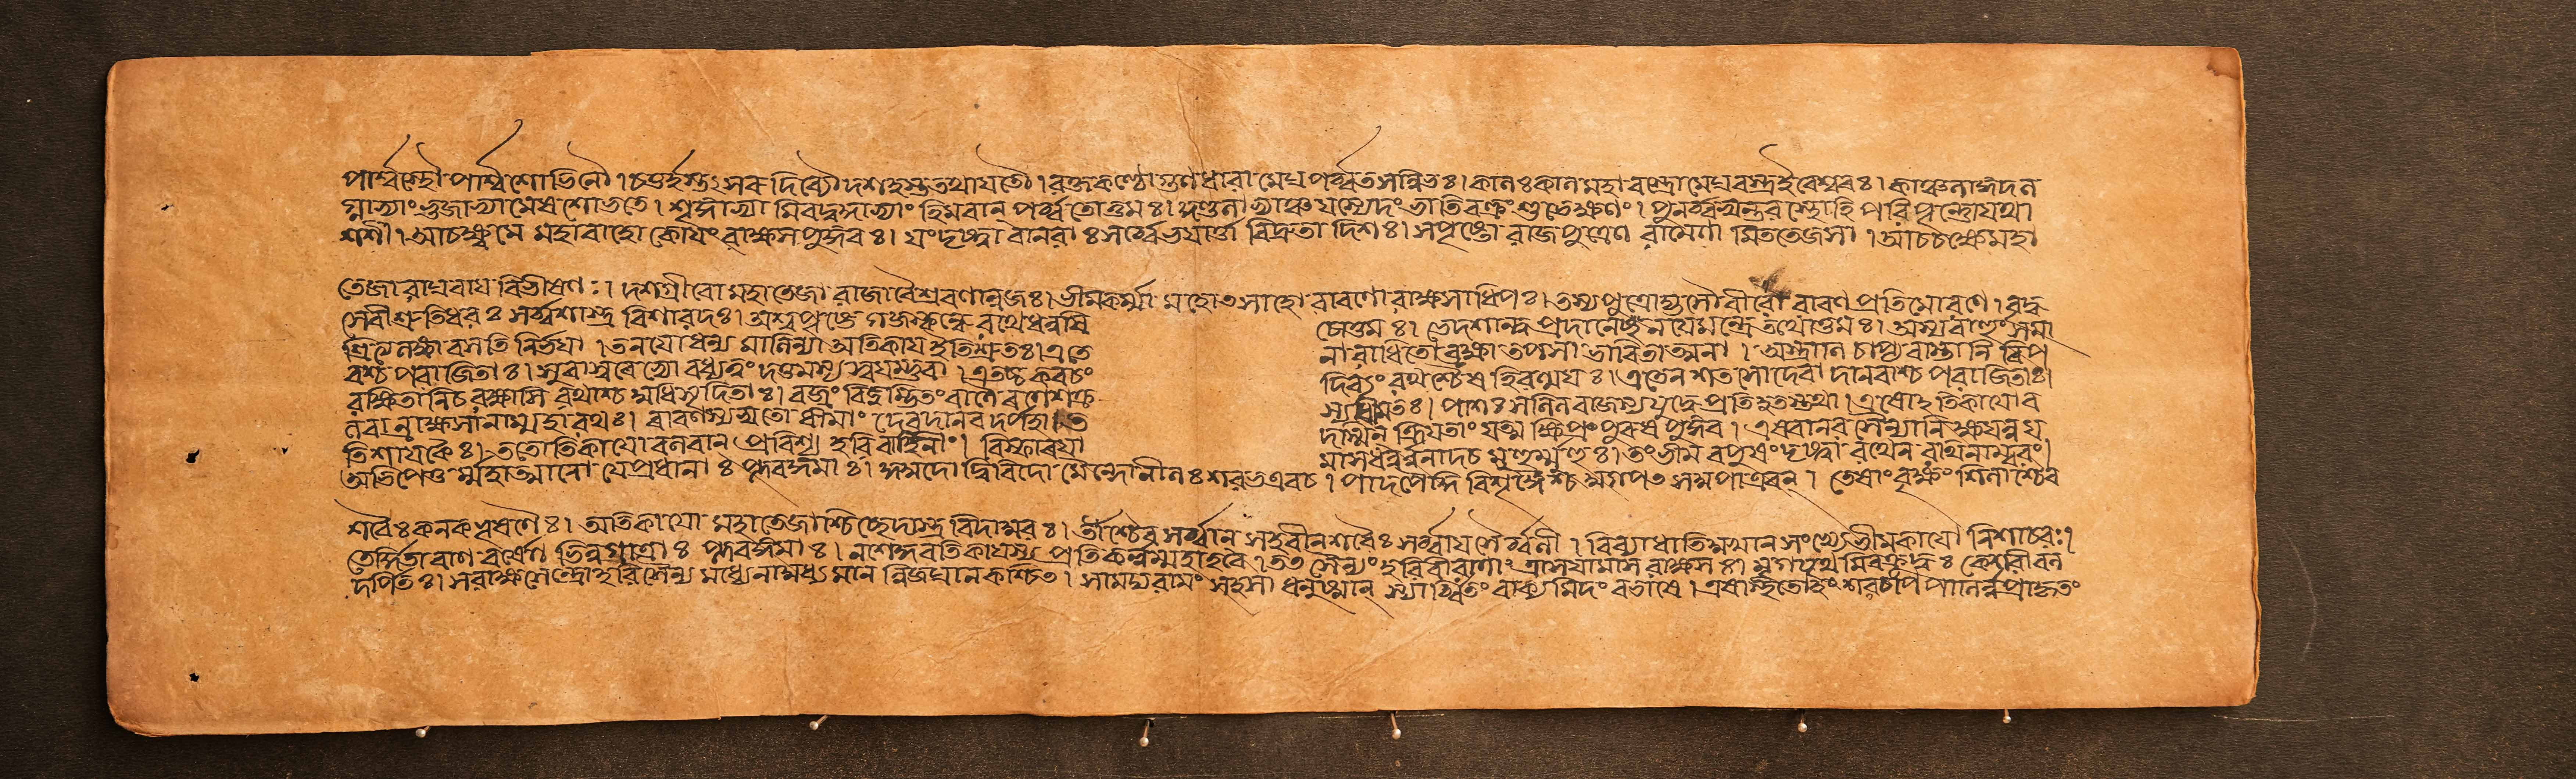 পার্শ্বস্থৌ পার্শ্বশোভিনৌ। চতুর্হস্ত সরু দিব্যৌ দশহস্ততথাযতৌ। রক্তকণ্ঠো গুণধারা মেঘ পর্ব্বতসন্নিভঃ। কালঃ কাল মহা বক্ত্রো মেঘবস্ত্রইবেশ্বরঃ। কাঞ্চনাঙ্গদন
দ্ধাভ্যাং ভুজাভ্যামেষশোভতে। শৃঙ্গাভ্যা মিবতুঙ্গাভ্যাং হিমবান্ পর্ব্বতোত্তমঃ। কুণ্ডলাভ্যাঞ্চ যস্যেদং ভাতিবক্ত্রং শুভেক্ষণং। পুনর্ব্বস্বন্তরস্থোহি পরিপূর্ণোযথা
শশী। আচক্ষ্বমে মহাবাহো কোযং রাক্ষসপুঙ্গবঃ। যংদৃষ্ট্বা বানরাঃ সর্ব্বেভযার্ত্তা বিদ্রুতা দিশঃ। সপৃষ্টো রাজপুত্রেণ রামেণা মিততেজসা। আচচক্ষেমহা
তেজা রাঘবায বিভীষণঃ। দশগ্রীবো মহাতেজা রাজাবৈশ্রবণানুজঃ। ভীমকর্ম্মা মহোৎসাহো রাবণো রাক্ষসাধিপঃ। তস্যপুত্রোস্ত্যসৌবীরো রাবণ প্রতিমোরণে। বৃদ্ধ
সেবীশ্রুতিধরঃ সর্ব্বশাস্ত্র বিশারদঃ। অশ্বপৃষ্ঠে গজস্কন্ধে রথেধনুষি চোত্তমঃ। ভেদেশান্ত্ব প্রদানেচ নযেমন্ত্রে তথোত্তমঃ। যস্যবাহুং সমা
শ্রিত্যেলঙ্কা বসতি নির্ভযা। তনযোধান্য মালিন্যা অতিকায ইতিশ্রুতঃ। এতে নারাধিতোব্রহ্মা তপসা ভাবিতাত্মনা। অস্ত্রাণি চাপ্যবাপ্তানি রিপ
বশ্চ পরাজিতাঃ। সুরাসুরৈ রবধ্যত্বং দত্তমস্য স্বযম্ভুবা। এতচ্চ কবচং দিব্যং রথশ্চৈষ হিরণ্মযঃ। এতেন শতশোদেবা দানবাশ্চ পরাজিতাঃ।
রক্ষিতানিচ রক্ষাংসি যক্ষাশ্চ বিনিসূদিতাঃ। বজ্রং বিষ্টম্ভিতংবাণৈ রণেশক্র স্যধীমতঃ। পাশঃ সলিলরাজস্যযুদ্ধেপ্রতিহতস্তথা। এষোহতিকাযোব
লবান্ রাক্ষসানাম্মহারথঃ। রাবণস্যসুতো ধীমাং দেবদানব দর্পহা। ত দাস্মিন্ ক্রিযতাং যত্নঃ ক্ষিপ্রং পুরুষপুঙ্গব। এষবানর সৈন্যানি ক্ষযন্নয
তিশাযকৈঃ। ততোতিকাযো বলবান্ প্রবিশ্য হরিবাহিনীং। বিস্ফারযা মাসধনুর্ননাদচ মুহুর্ম্মুহুঃ। তংভীম বপুষংদৃষ্ট্বা রথেন রথিনাম্বরং।
অভিপেতু র্ম্মহাত্মানো যেপ্রধানাঃ প্লবঙ্গমাঃ। কুমুদো দ্বিবিদো মৈন্দোনীলঃ শরভএবচ। পাদপৈর্গিরিশৃঙ্গৈশ্চ যুগপৎ সমুপাদ্রবন্। তেষাং বৃক্ষাং শিলাশ্চৈব
শরৈঃ কনকভূষণৈঃ। অতিকাযো মহাতেজাশ্চিচ্ছেদাস্ত্র বিদাম্বরঃ। তাংশ্চৈব সর্ব্বান্ সহরীন্শরৈঃ সর্ব্বাযসৈর্ব্বলী। বিব্যাধাভিমুখান সংখ্যেভীমকাযো নিশাচরঃ।
তের্দ্দিতা বাণ বর্ষেণ ভিন্নগাত্রাঃ প্লবঙ্গমাঃ। নশেকুরতিকাযস্য প্রতিকর্ত্তুম্মহাহবে। তত সৈন্যং হরিবীরাণাং ত্রাসযামাস রাক্ষসঃ। মৃগযূথ মিবক্রুদ্ধঃ কেশরীবল
দর্পিতঃ। সরাক্ষসেন্দ্রোহরিসৈন্য মধ্যেনাযুধ্যমান ন্নিজঘান কশ্চিত। সামর্ষরামং সহসা ধনুষ্মান্ সগর্ব্বিতং বাক্যমিদং বভাষে। এষাস্থিতোহংশরচাপ পাণির্ন্নপ্রাকৃতং